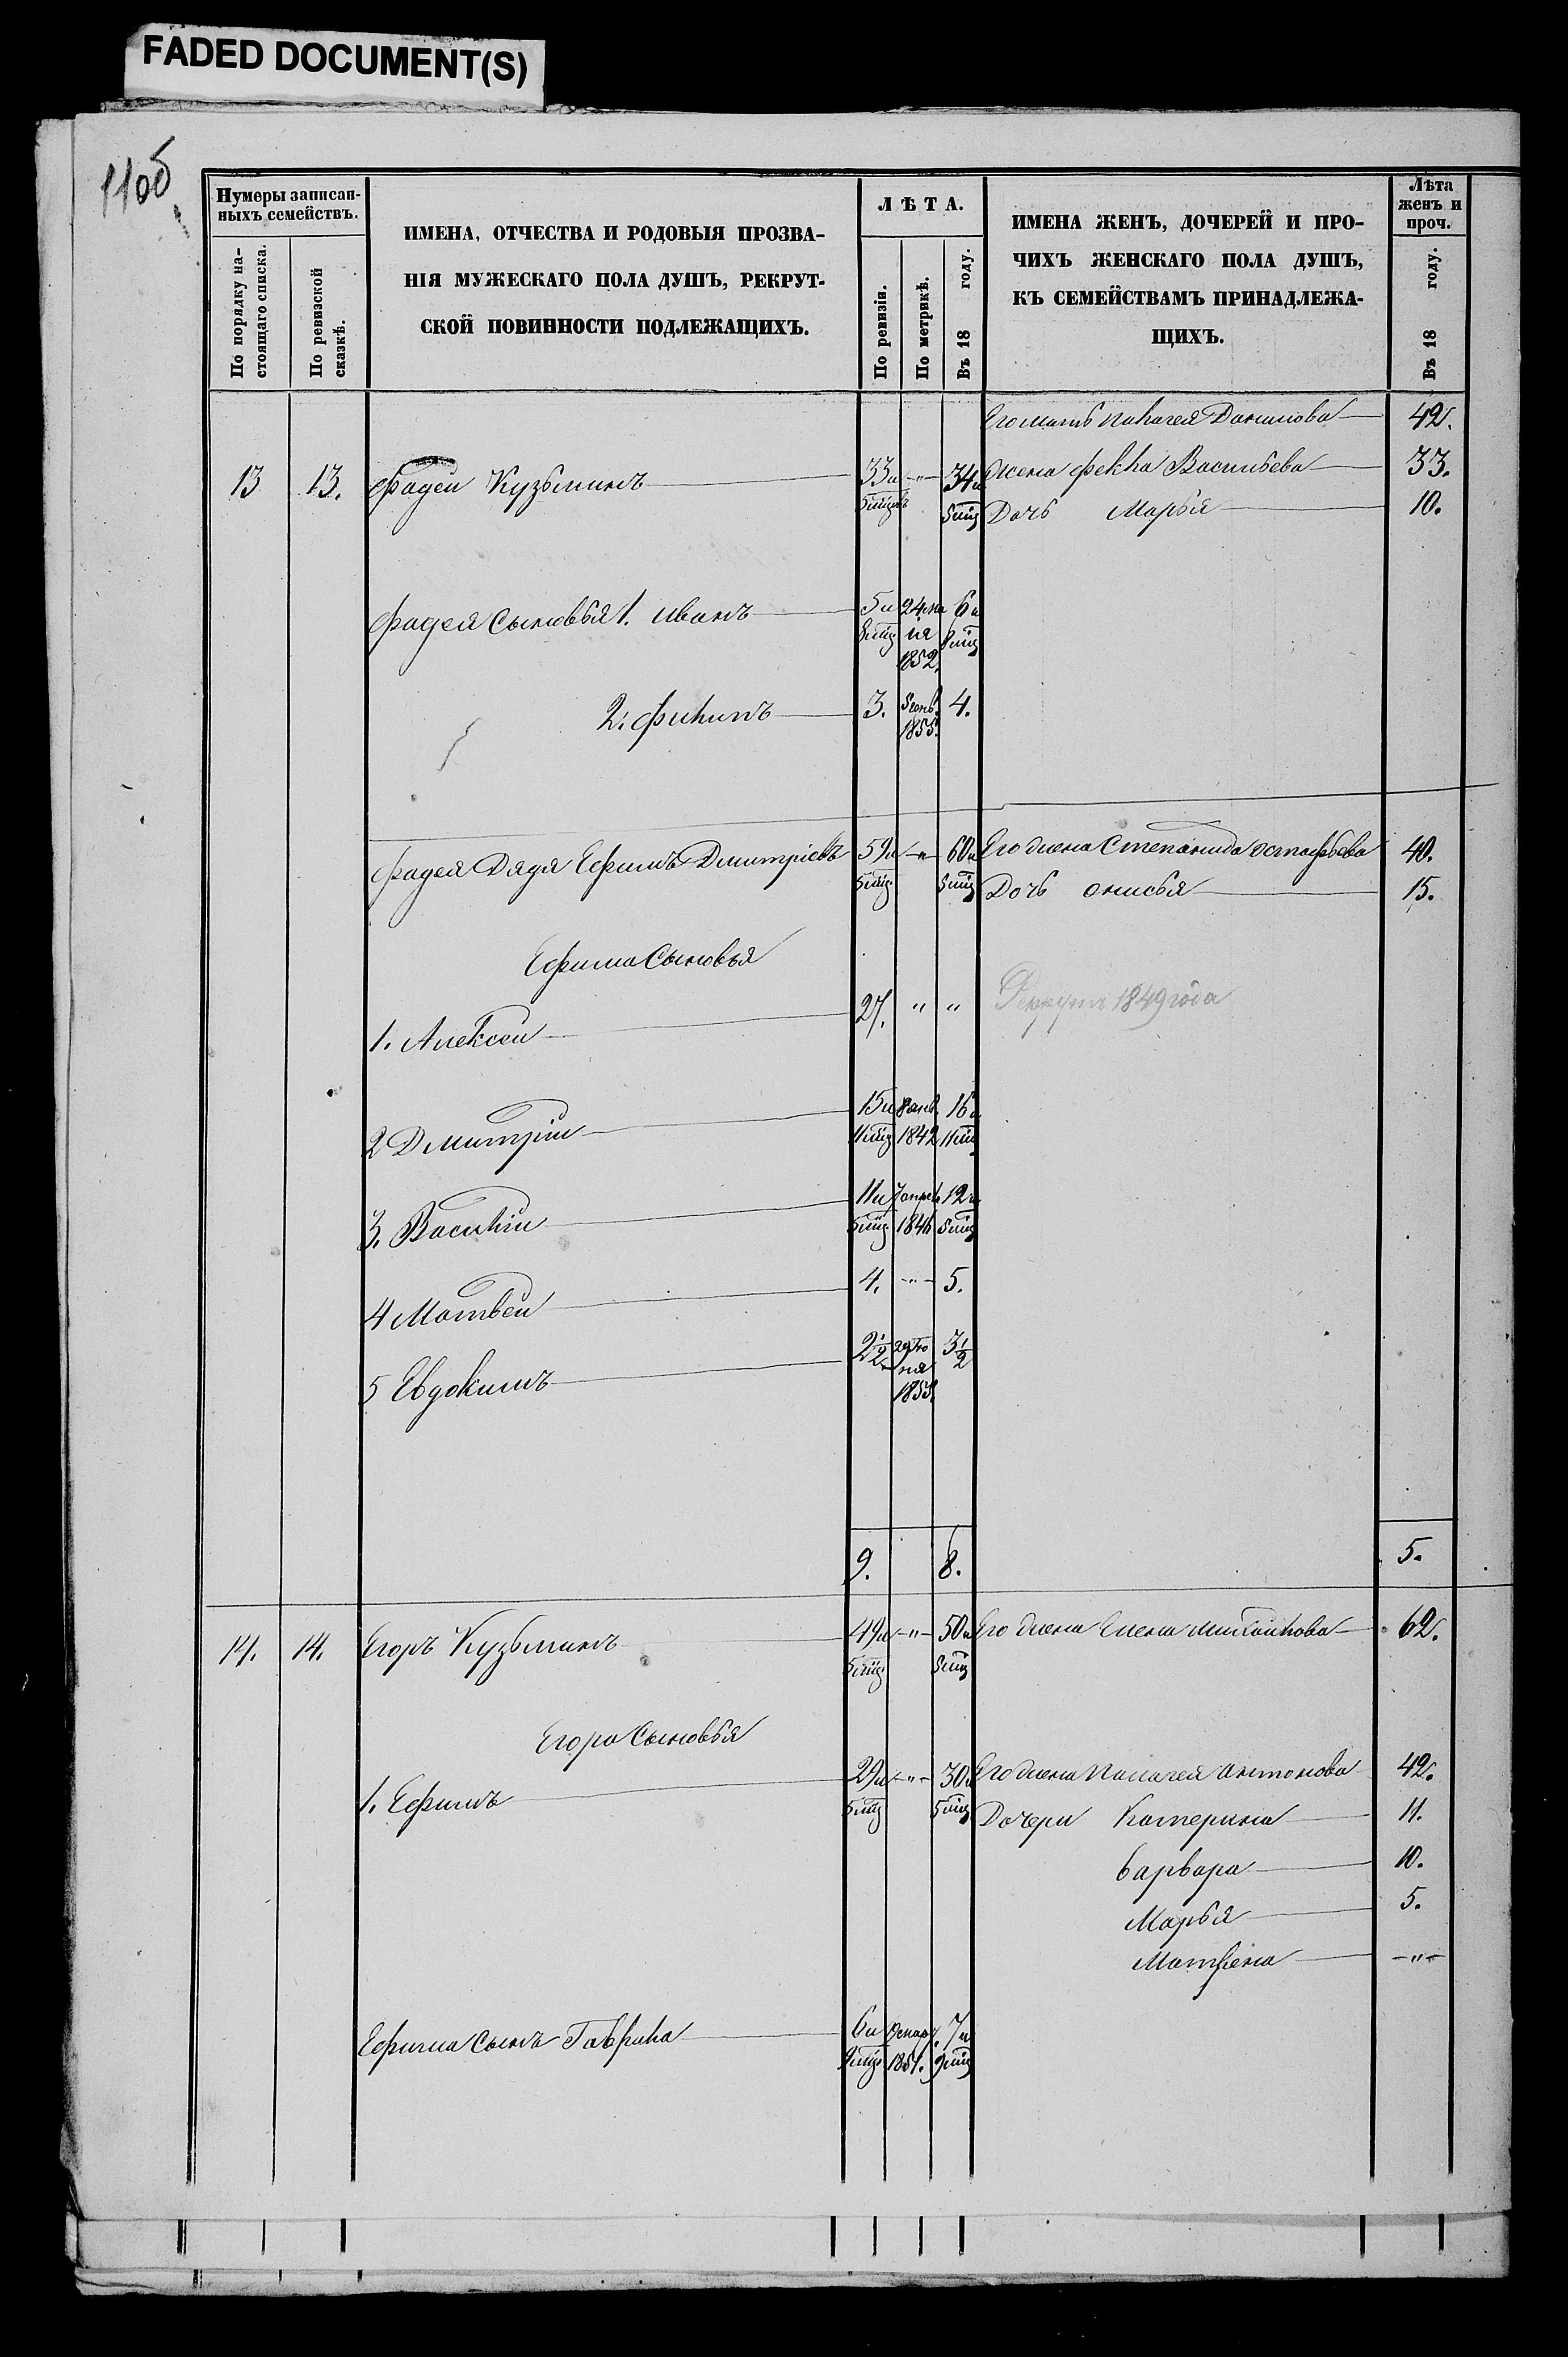 FADED DOCUMENT(S)
1106
Нумеры записан-
ныхъ семействъ.
По порядку на-
стоящаго списка.
По ревизской
сказкѣ.
ИМЕНА, ОТЧЕСТВА И РОДОВЫЯ ПРОЗВА-
НІЯ МУЖЕСКАГО ПОЛА ДУШЪ, РЕКРУТ-
СКОЙ ПОВИННОСТИ ПОДЛЕЖАЩИХЪ.
ЛѢТА.
По ревизіи.
По метрикѣ.
Въ 18 году.
ИМЕНА ЖЕНЪ, ДОЧЕРЕЙ И ПРО-
ЧИХЪ ЖЕНСКАГО ПОЛА ДУШЪ,
КЪ СЕМЕЙСТВАМЪ ПРИНАДЛЕЖА-
ЩИХЪ.
Лѣта
женъ и
проч.
Въ 18 году.
Его мать Палагея Данилова 42.
13 13. Фадеи Кузьминъ 33 и -"- 34 и жена Фекла Васильева 33.
5 мцовъ 5 мцъ Дочь Марья 10.
Фадея сыновья 1. иванъ 5 и 24 6 и
8 мцъ 1852. 8 мцъ
2. Филипъ 3. 1855. 4.
Фадея Дядя Ефимъ Дмитріевъ 59 и -"- 60 и Его жена Степанида остафьева 40.
5 мцъ 5 мцъ Дочь онисья 15.
Ефима Сыновья
1. Алексеи 27. " " Рекрутъ 1849 года
2 Дмитріи 15 и 16 и
11 мцъ 1842 11 мцъ
3. Василіи 11 и 7 апрел 12 и
5 мцъ 1846 5 мцъ
4 Матвеи 4. -"- 5.
5 Евдокимъ 2½ 3½
1855.
9. 8. 5.
14. 14. Егоръ Кузьминъ 49 и -"- 50 и Его жена Елена михаилова 62.
5 мцъ 5 мцъ
Егора Сыновья
1. Ефимъ 29 и -"- 30 и Его жена Палагея антонова 42.
5 мцъ 5 мцъ Дочери Катерина 11.
варвара 10.
Марья 5.
Матрена -"-
Ефима сынъ Гаврила 6 и 7 и
9 мцъ 1851. 9 мцъ